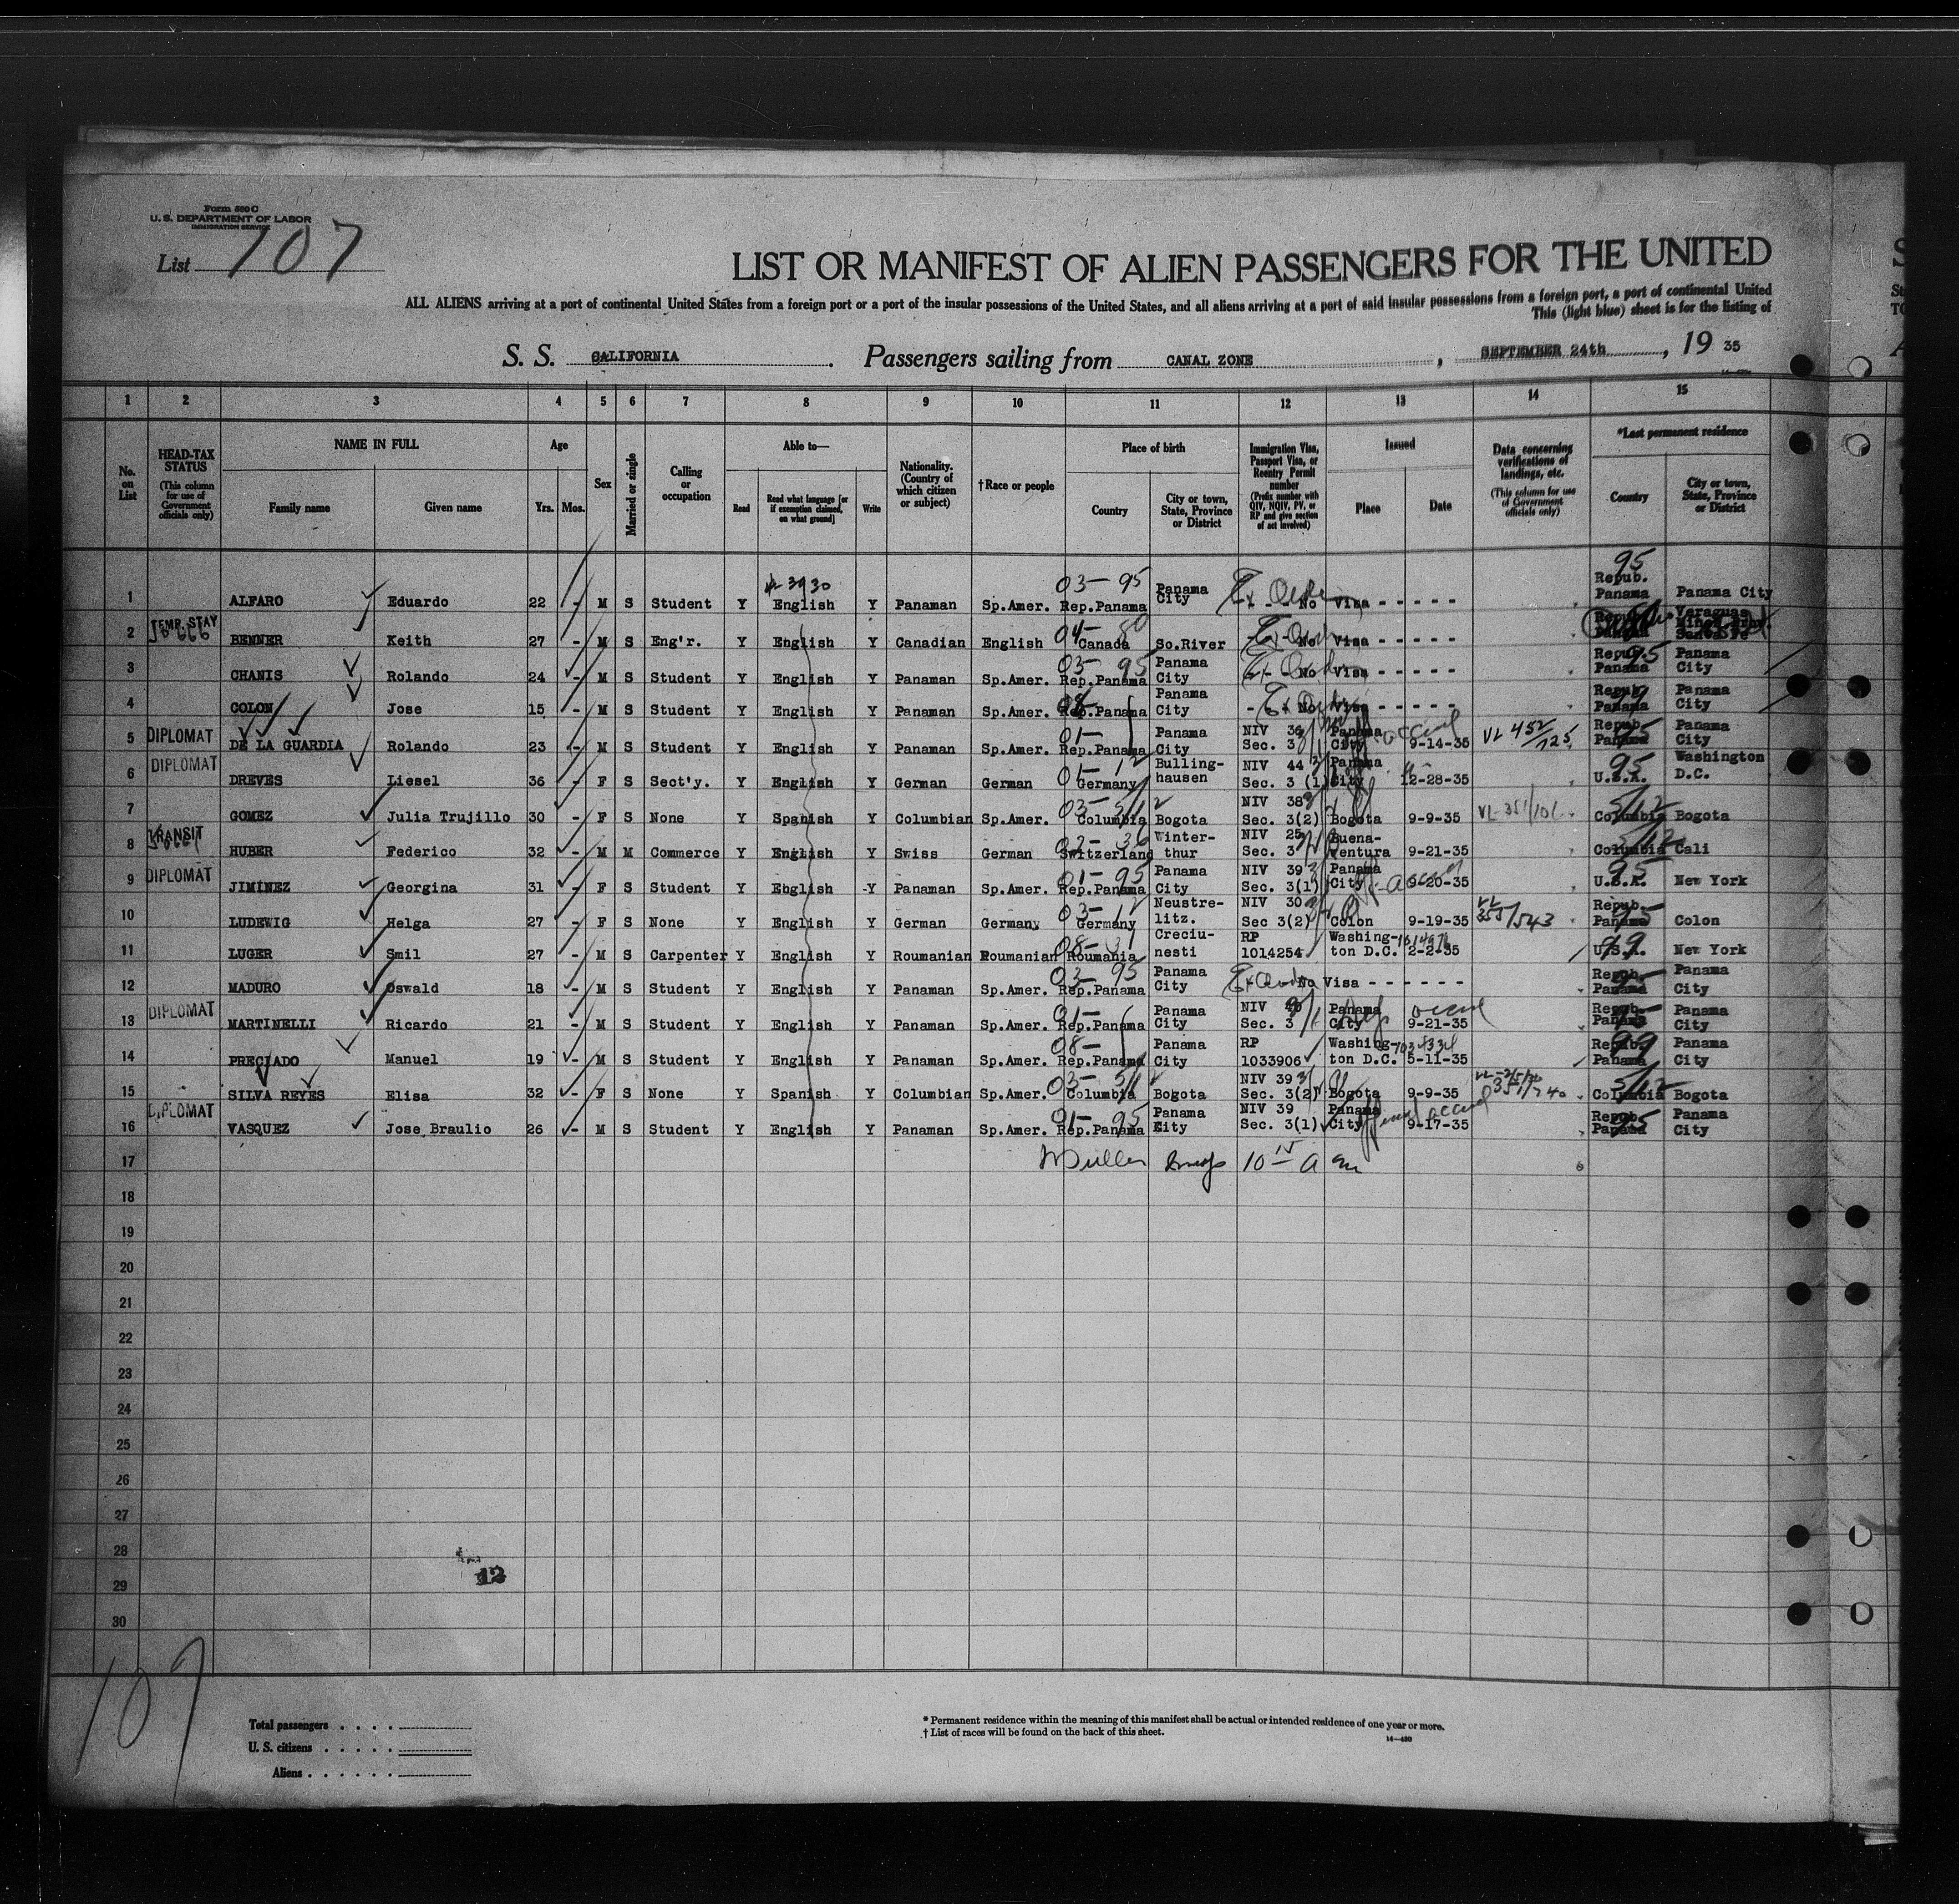 Form 500 C
U. S. DEPARTMENT OF LABOR
IMMIGRATION SERVICE
List 107
LIST OR MANIFEST OF ALIEN PASSENGERS FOR THE UNITED
ALL ALIENS arriving at a port of continental United States from a foreign port or a port of the insular possessions of the United States, and all aliens arriving at a port of said insular possessions from a foreign port, a port of continental United
This (light blue) sheet is for the listing of
S. S. CALIFORNIA. Passengers sailing from CANAL ZONE, SEPTEMBER 24th, 19 35
1 2 3 4 5 6 7 8 9 10 11 12 13 14 15
No. on List
HEAD-TAX STATUS (This column for use of Government officials only)
NAME IN FULL Family name Given name
Age Yrs. Mos.
Sex
Married or single
Calling or occupation
Able to— Read Read what language [or if exemption claimed, on what ground] Write
Nationality. (Country of which citizen or subject)
†Race or people
Place of birth Country City or town, State, Province or District
Immigration Visa, Passport Visa, or Reentry Permit number (Prefix number with QIV, NQIV, PV, or RP and give section of act involved)
Issued Place Date
Data concerning verifications of landings, etc. (This column for use of Government officials only)
*Last permanent residence Country City or town, State, Province or District
1 ALFARO Eduardo 22 - M S Student Y English Y Panaman Sp.Amer. 03-95 Rep.Panama Panama City No Visa - - - - - 95 Repub. Panama Panama City
2 TEMP. STAY BENNER Keith 27 - M S Eng'r. Y English Y Canadian English 04- Canada So.River No Visa - - - - -
3 CHANIS Rolando 24 - M S Student Y English Y Panaman Sp.Amer. 03-95 Rep.Panama Panama City No Visa - - - - - Repub. Panama 95 Panama City
4 COLON Jose 15 - M S Student Y English Y Panaman Sp.Amer. Rep.Panama Panama City No Visa - - - - - Repub. Panama Panama City
5 DIPLOMAT DE LA GUARDIA Rolando 23 - M S Student Y English Y Panaman Sp.Amer. 01- Rep.Panama Panama City NIV 36 Sec. 3 Panama City 9-14-35 VL 452/125 Repub. Panama Panama City
6 DIPLOMAT DREVES Liesel 36 - F S Sect'y. Y English Y German German 01-12 Germany Bulling-hausen NIV 44 Sec. 3 (1) Panama City 12-28-35 95 U.S.A. Washington D.C.
7 GOMEZ Julia Trujillo 30 - F S None Y Spanish Y Columbian Sp.Amer. 03-5/12 Columbia Bogota NIV 38 Sec. 3(2) Bogota 9-9-35 5/12 Columbia Bogota
8 TRANSIT HUBER Federico 32 - M M Commerce Y English Y Swiss German Switzerland Winter-thur NIV 25 Sec. 3 Buena-ventura 9-21-35 Columbia Cali
9 DIPLOMAT JIMINEZ Georgina 31 - F S Student Y English Y Panaman Sp.Amer. 01-95 Rep.Panama Panama City NIV 39 Sec. 3(1) Panama City 9-20-35 95 U.S.A. New York
10 LUDEWIG Helga 27 - F S None Y English Y German Germany 03-12 Germany Neustre-litz. NIV 30 Sec 3(2) Colon 9-19-35 VL 355/543 Repub. Panama Colon
11 LUGER Smil 27 - M S Carpenter Y English Y Roumanian Roumanian 08- Roumania Creciu-nesti RP 1014254 Washing-ton D.C. 2-2-35 U.S.A. New York
12 MADURO Oswald 18 - M S Student Y English Y Panaman Sp.Amer. 03-95 Rep.Panama Panama City No Visa - - - - - - Repub. Panama Panama City
13 DIPLOMAT MARTINELLI Ricardo 21 - M S Student Y English Y Panaman Sp.Amer. 01- Rep.Panama Panama City NIV Sec. 3 Panama City 9-21-35 Repub. Panama Panama City
14 PRECIADO Manuel 19 - M S Student Y English Y Panaman Sp.Amer. 08- Rep.Panama Panama City RP 1033906 Washing-ton D.C. 5-11-35 Repub. Panama 99 Panama City
15 SILVA REYES Elisa 32 - F S None Y Spanish Y Columbian Sp.Amer. 03-5/12 Columbia Bogota NIV 39 Sec. 3(2) Bogota 9-9-35 5/12 Columbia Bogota
16 DIPLOMAT VASQUEZ Jose Braulio 26 - M S Student Y English Y Panaman Sp.Amer. 01-95 Rep.Panama Panama City NIV 39 Sec. 3(1) Panama City 9-17-35 Repub. Panama 95 Panama City
17
18
19
20
21
22
23
24
25
26
27
28
29
30
12
107
Total passengers
U. S. citizens
Aliens
* Permanent residence within the meaning of this manifest shall be actual or intended residence of one year or more.
† List of races will be found on the back of this sheet.
14—430